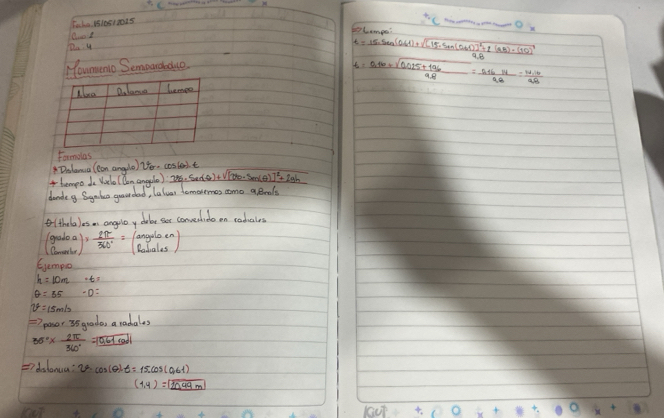 Fecha 15/05/2025
Dia 4
Movimiento Semiparabolico
Altura Distancia tiempo
Formulas
* Distancia (Con angulo) V₀ · cos(θ) · t
+ tiempo de Vuelo (Con angulo) · V₀ · Sen(θ) + √[V₀ · Sen(θ)]² + 2gh
donde g Significa gravedad, la cual tomaremos como 9,8m/s
θ (theta) es el angulo y debe ser convertido en radiales
(grado a Convertir) × 2π/360° = (angulo en Radiales)
Ejemplo
h = 10m - t =
θ = 35 - D =
V = 15m/s
=> pasar 35 grados a radiales
35° × 2π/360° = 0,61 rad
=> distancia: V · cos(θ) · t = 15 · cos(0,61)
(1,4) =
=> tiempo:
t = 15 · Sen(0,61) + √[15 · Sen(0,61)]² + 2 (9,8) - (10)
9,8
9,8 9,8 9,8